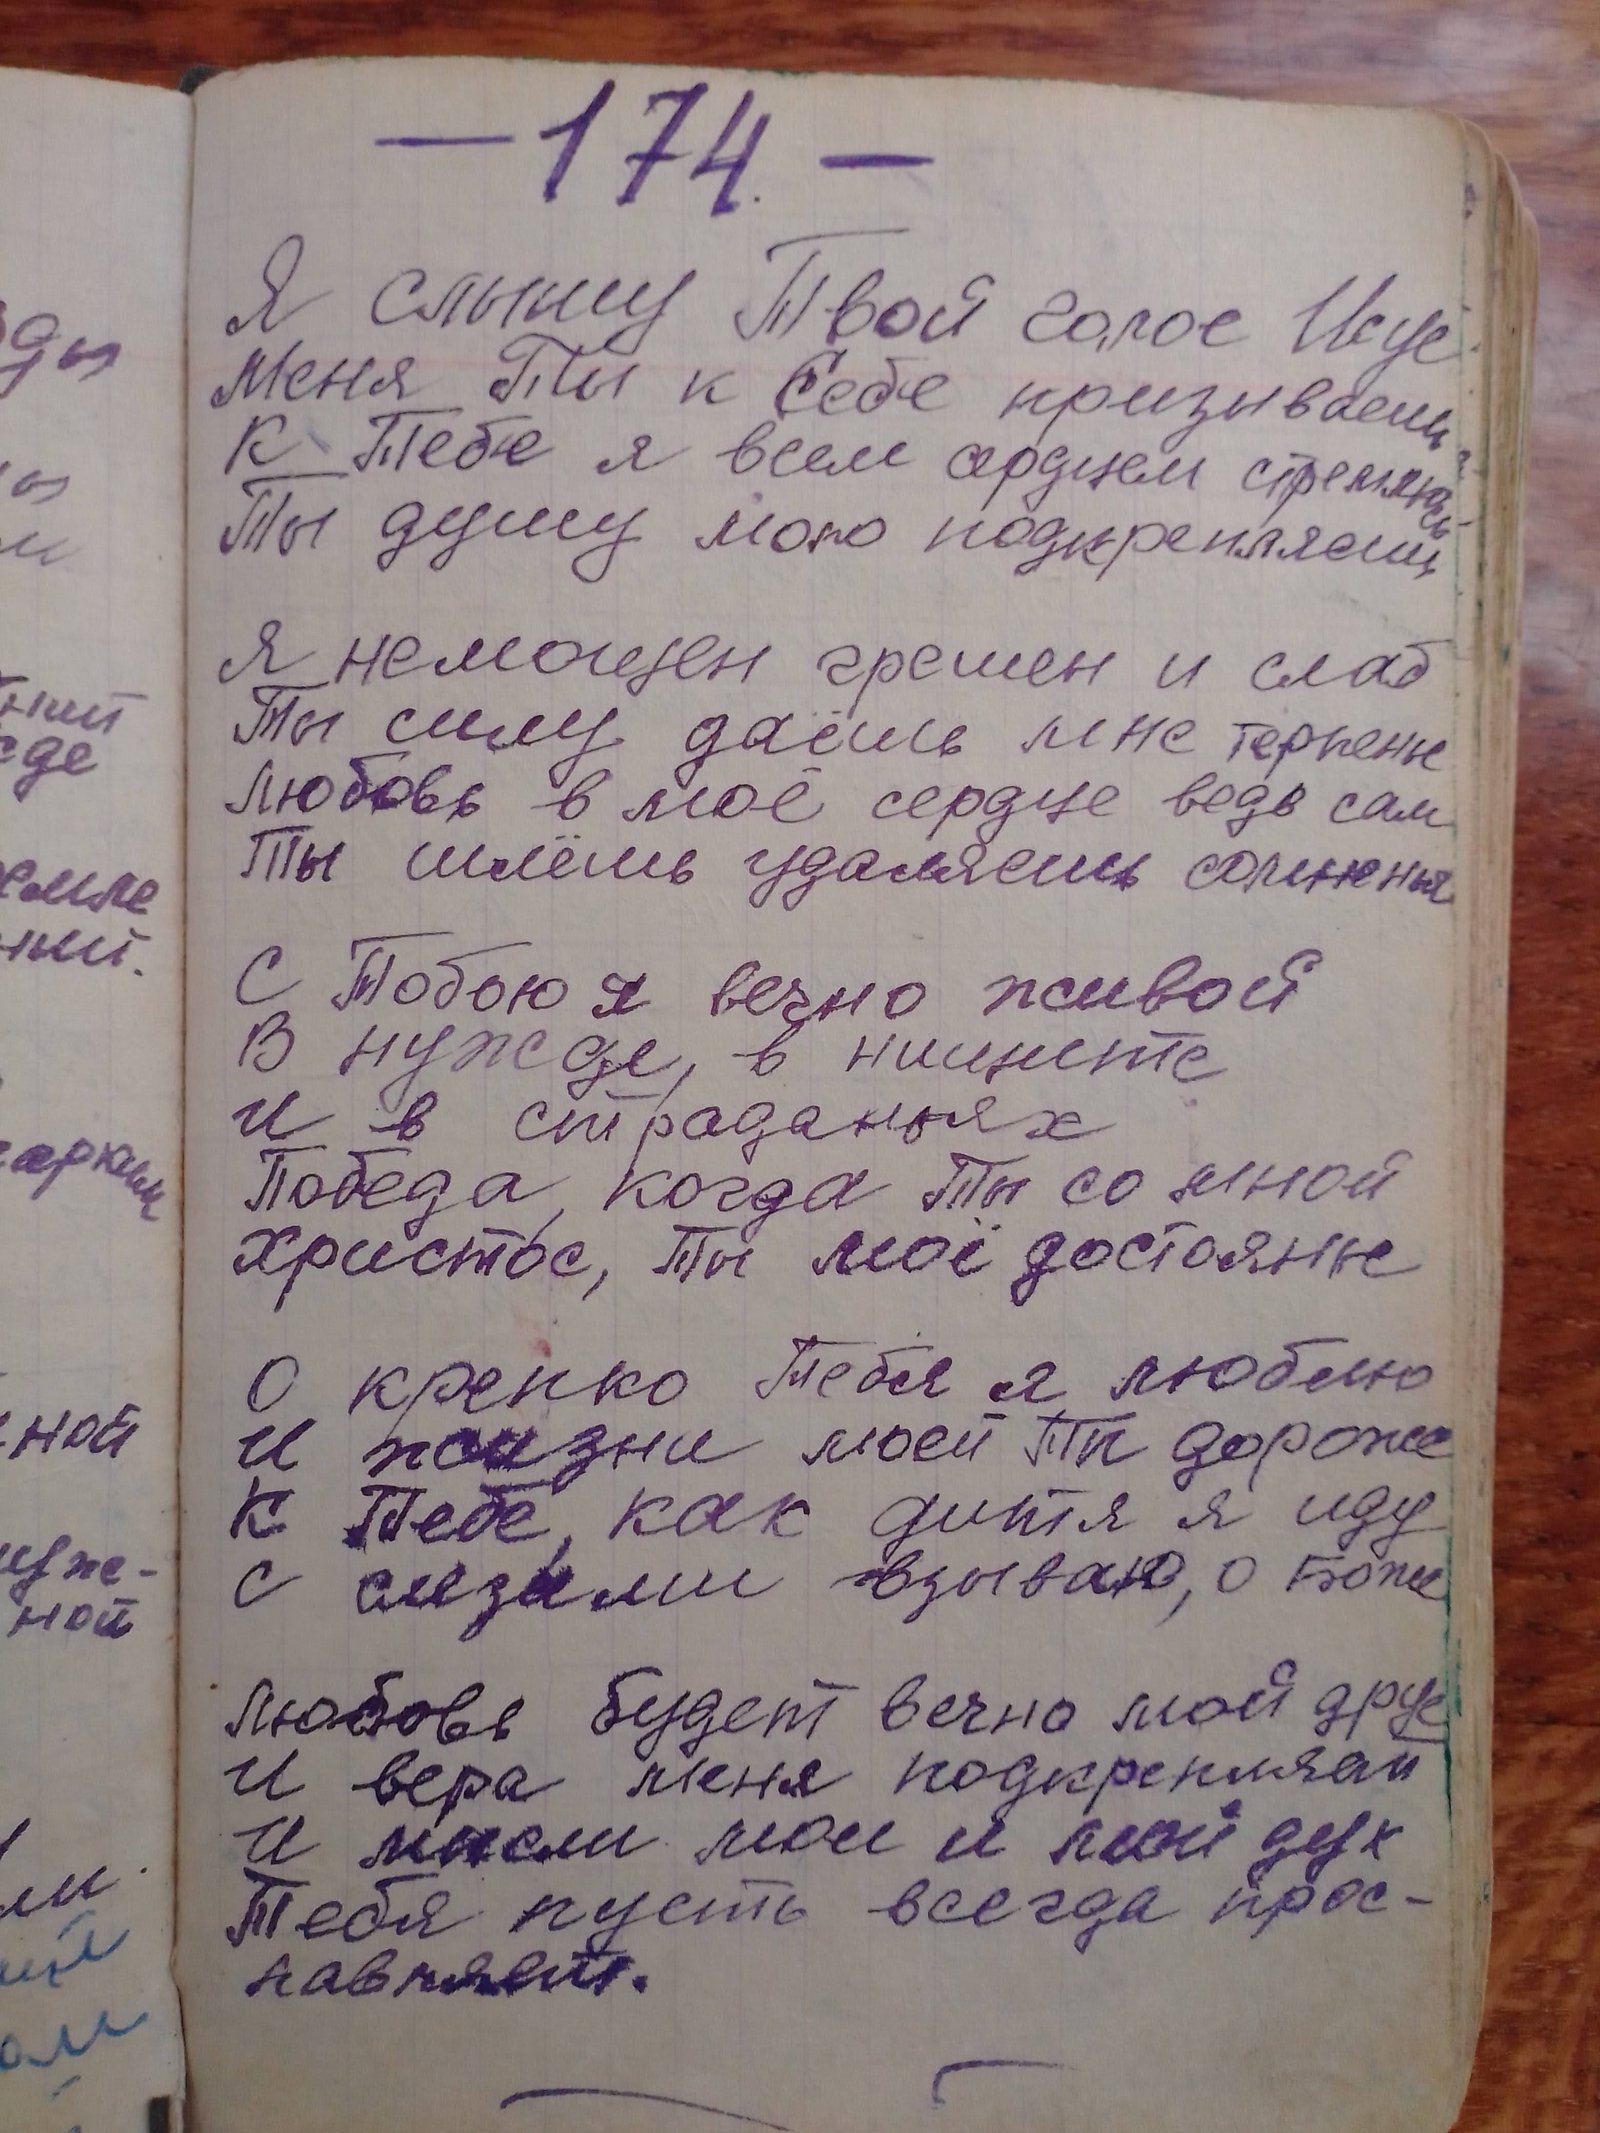 — 174. —
Я слышу Твой голос Исус
Меня Ты к Себе призываешь
К Тебе я всем сердцем стремлюсь
Ты душу мою подкрепляешь
Я немощен грешен и слаб
Ты силу даёшь мне терпенье
Любовь в моё сердце ведь сам
Ты шлёшь удаляешь сомненья
С Тобою я вечно живой
В нужде, в нищите
И в страданьях
Победа, когда Ты со мной
Христос, Ты моё достоянье
О крепко Тебя я люблю
И жизни моей Ты дороже
К Тебе, как дитя я иду
С слезами взываю, о Боже
Любовь будет вечно мой друг
И вера меня подкрепляет
И мысли мои и мой дух
Тебя пусть всегда прос-
лавляет.
ды
ны
ний
где
ний.
ной
нуж-
ной